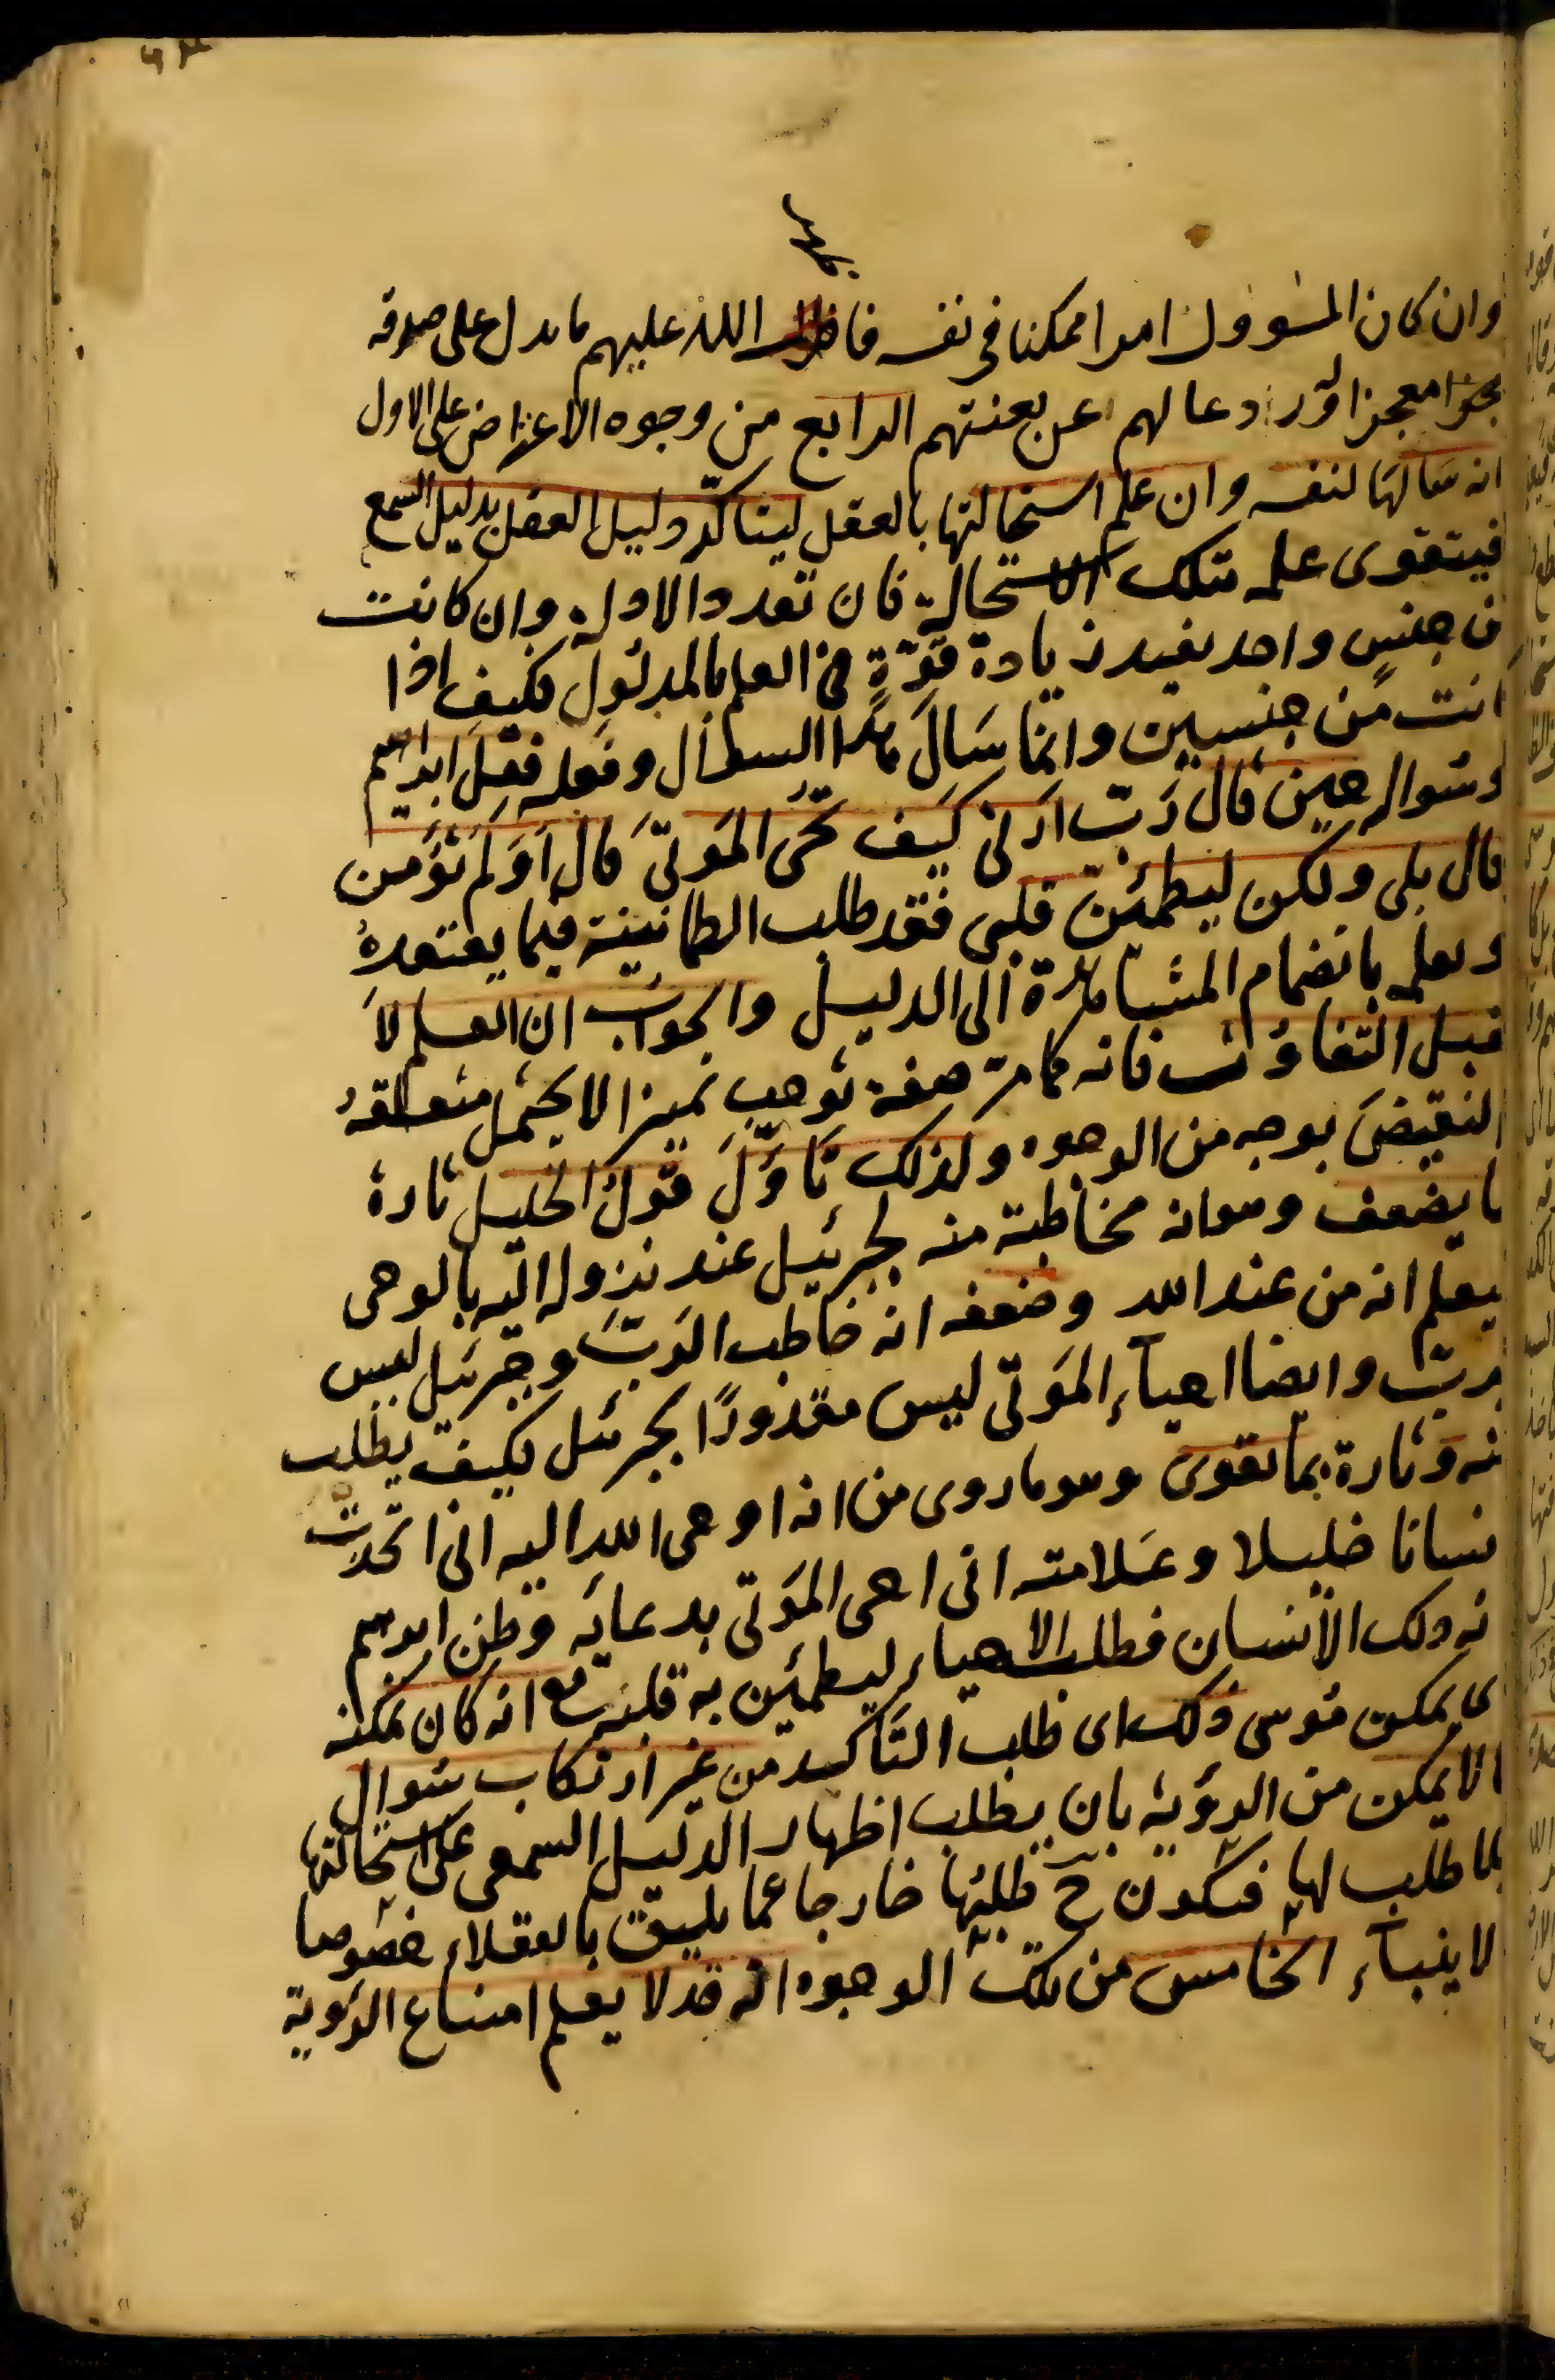 وان كان المسؤول امرا ممكنا في نفسه فاظهر الله عليهم ما يدل على صدقه
معجزا ورادعا لهم عن تعنتهم الرابع من وجوه الاعتراض على الاول
انه سالها لنفسه وان علم استحالتها بالعقل ليتاكد دليل العقل بدليل السمع
فيتقوى علمه بتلك الاستحالة فان تعدد الادلة وان كانت
من جنسٍ واحد يفيد زيادة قوّةٍ في العلم بالمدلول فكيف اذا
كانت من جنسين وانما سَالَ هذا السوال وفعله فعل ابراهيم
وسواله حين قال رَبّ ارَنى كيَف تحيى المَوتىَ قال اَوَ لَم تؤمن
قال بلى ولكن ليطمئنّ قلبى فقد طلب الطمانينة فيما يعتقدهُ
ويعلمه بانضمام المشاهدة الى الدليل والجواب ان العلم لا
يقبل التفاوت فانه كما مر صفة توجب تمييزا لا يحتمل متعلقهُ
النقيضَ بوجه من الوجوه ولذلك تاوّلَ قول الخليل تارة
بما يضعف وهو انه مخاطبة منه لجبرئيل عند نزوله اليه بالوحى
ليعلم انه من عند الله وضعفه انه خاطب الرَبّ وجبرئيل ليس
برب وايضا احيآء المَوتى ليس مقدورًا لجبرئيل فكيف يطلب
منه وتارة بما يقوى وهو ما روى من انه اوحى الله اليه انى اتخذت
انسانا خليلا وعَلامته انى احى المَوتى بدعايه وظن ابرهيم
انه ذلك الانسان فطلب الاحياء ليطمئن به قلبه مع انه كان يمكنه
اى يمكن موسى ذلك اى طلب التاكيد من غير ارتكاب سوال
ما لا يمكن من الرؤية بان يطلب اظهار الدليل السمعى على استحالتها
بلا طلب لها فيكون ح طلبها خارجا عما يليق بالعقلاء خصوصا
الانبيآء الخامس من تلك الوجوه انه قد لا يعلم امتناع الرؤية